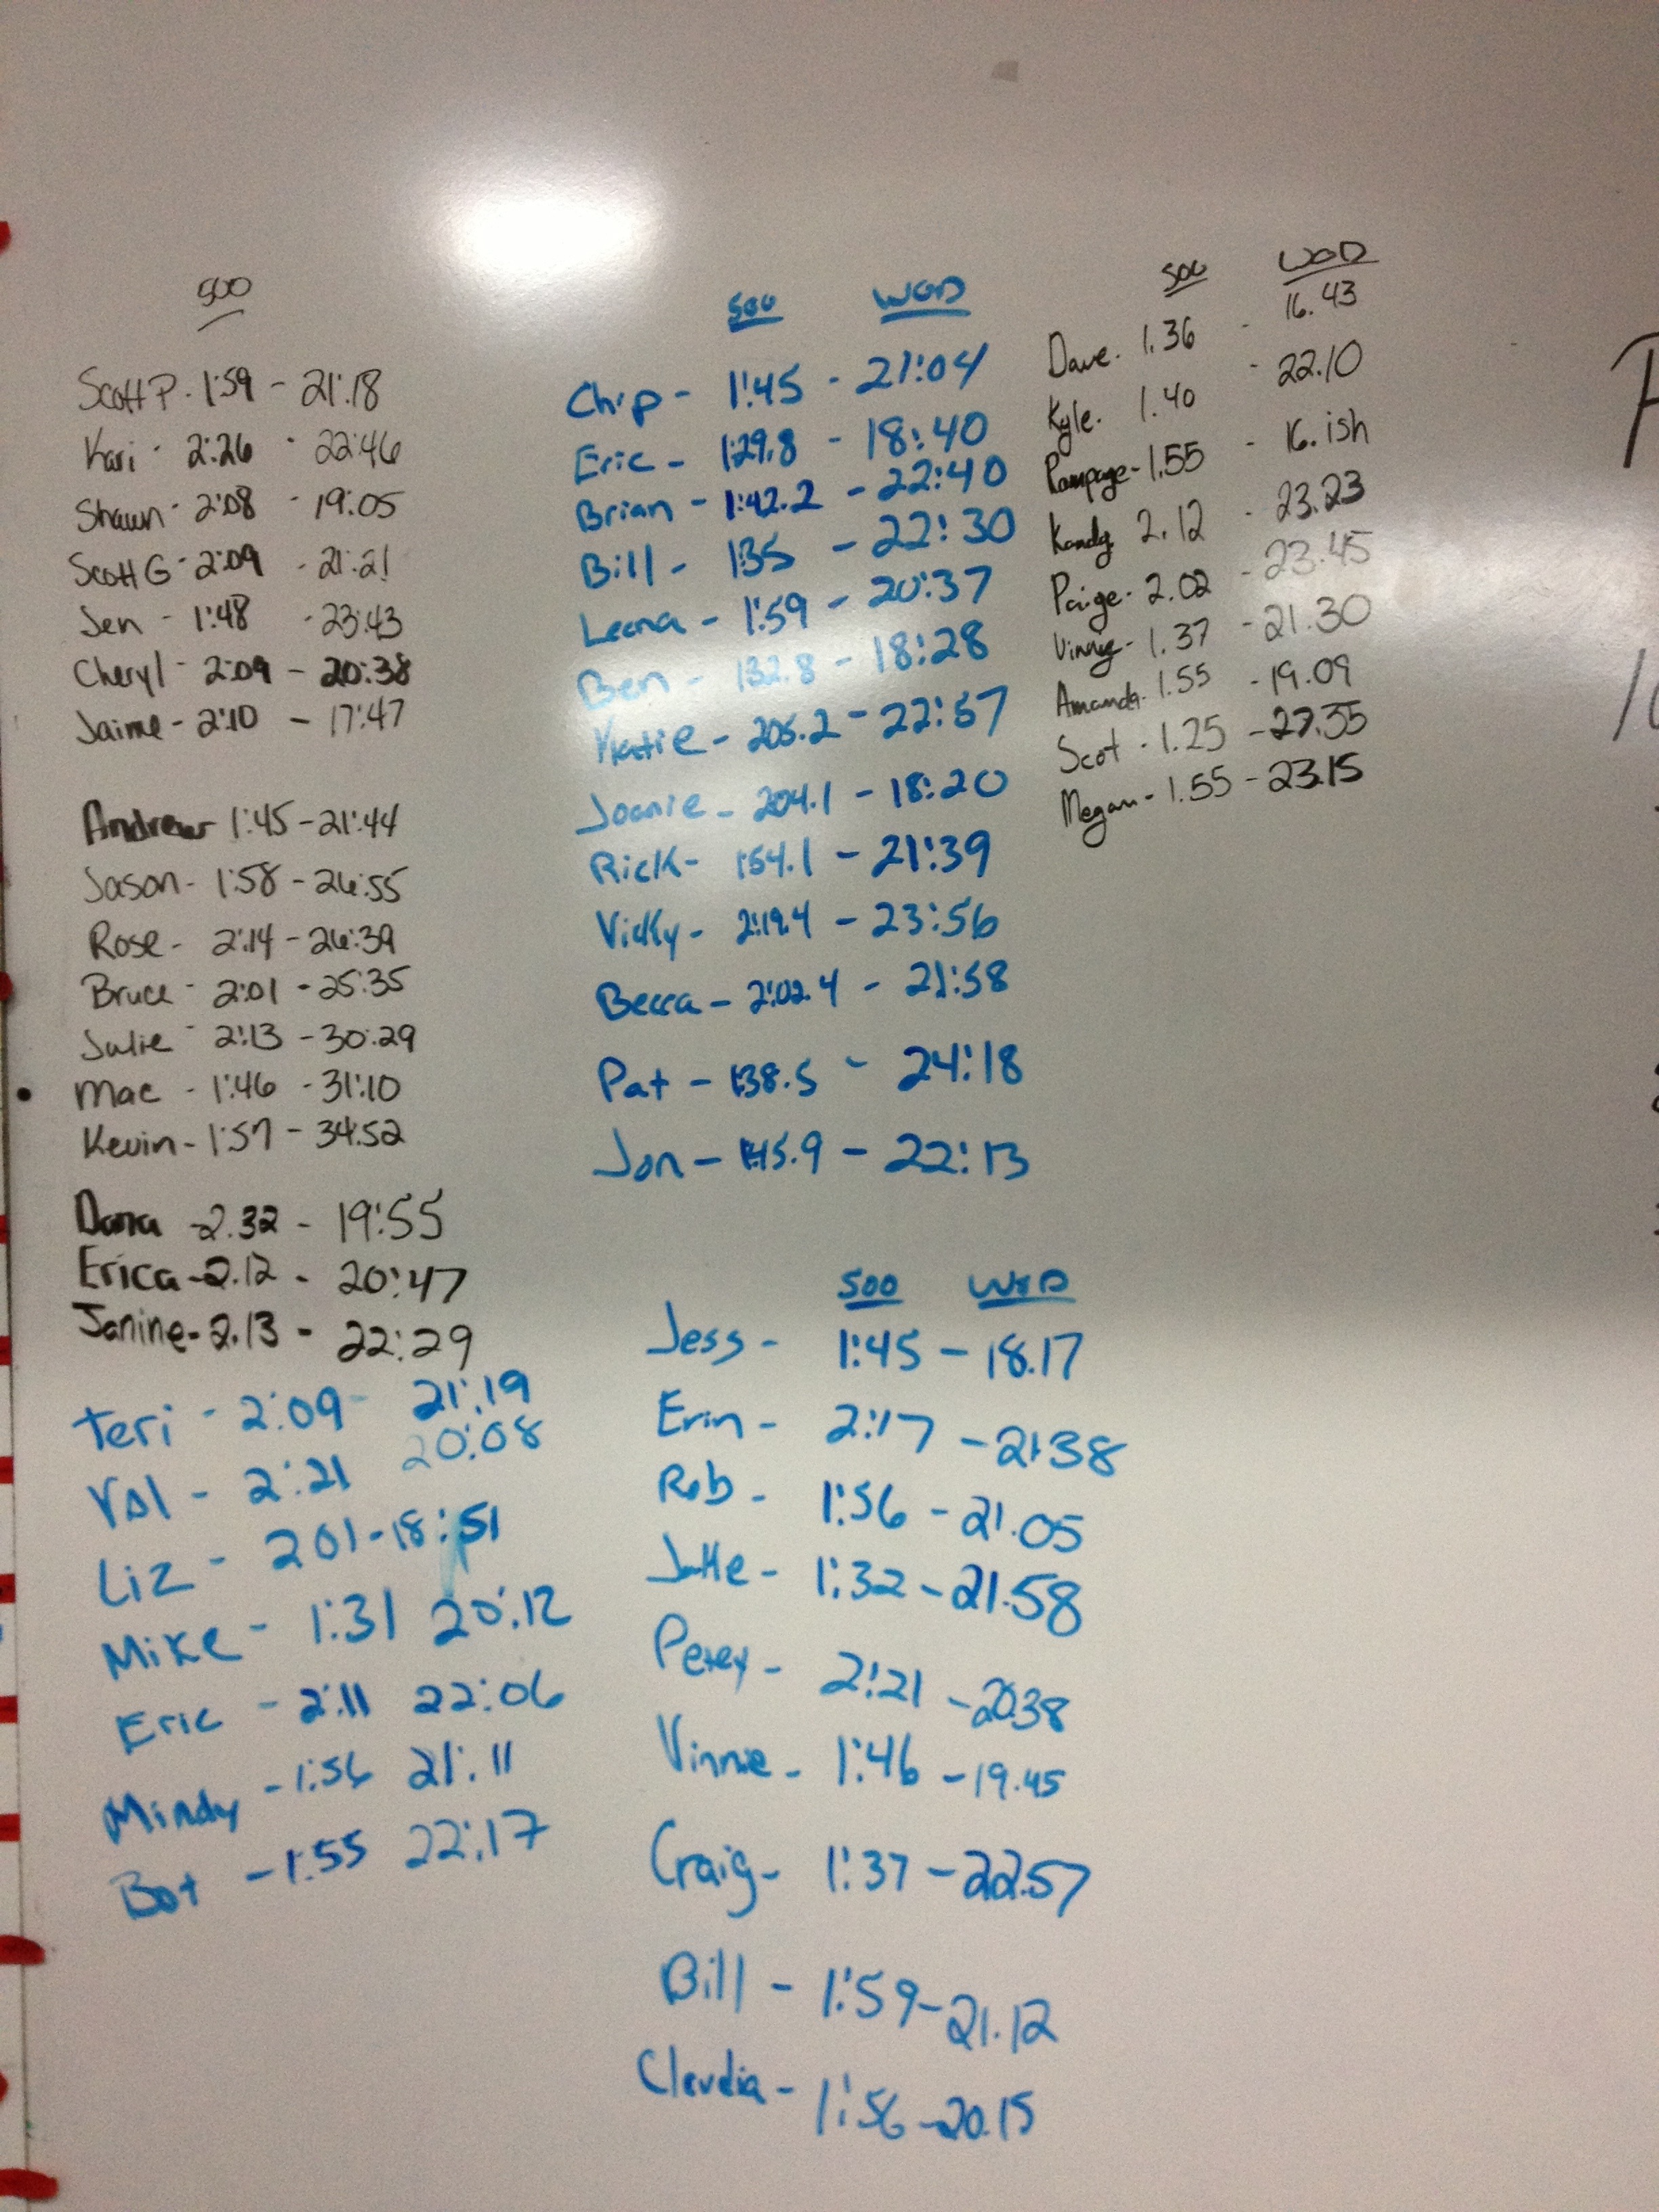 500
Scott P. 1:59 - 21:18
Kari - 2:26 - 22:46
Shawn - 2:08 - 19:05
Scott G - 2:09 - 21:21
Jen - 1:48 - 23:43
Cheryl - 2:09 - 20:38
Jaime - 2:10 - 17:47
Andrew 1:45 - 21:44
Jason - 1:58 - 26:55
Rose - 2:14 - 26:39
Bruce - 2:01 - 25:35
Julie - 2:13 - 30:29
Mac - 1:46 - 31:10
Kevin - 1:57 - 34:52
Dana - 2.32 - 19:55
Erica - 2.12 - 20:47
Janine - 2.13 - 22:29
Teri - 2:09 - 21:19
Val - 2:21 20:08
Liz - 201 - 18:51
Mike - 1:31 20:12
Eric - 2:11 22:06
Mindy - 1:56 21:11
Bot - 1:55 22:17
500 WOD
Chip - 1:45 - 21:04
Eric - 1:29.8 - 18:40
Brian - 1:42.2 - 22:40
Bill - 1:35 - 22:30
Leena - 1:59 - 20:37
Ben - 1:32.8 - 18:28
Katie - 205.2 - 22:57
Joanie - 204.1 - 18:20
Rick - 1:54.1 - 21:39
Vicky - 2:19.4 - 23:56
Becca - 2:02.4 - 21:58
Pat - 1:38.5 - 24:18
Jon - 1:45.9 - 22:13
500 WOD
Jess - 1:45 - 18.17
Erin - 2:17 - 21:38
Rob - 1:56 - 21.05
1:32 - 21.58
Petey - 2:21 - 20:38
Vinnie - 1:46 - 19.45
Craig - 1:37 - 22.57
Bill - 1:59 - 21.12
Claudia - 1:56 - 20.15
500 WOD
Dave. 1.36 - 16.43
Kyle. 1.40 - 22.10
Rampage - 1.55 - 16.ish
2.12 - 23.23
Paige - 2.02 - 23.45
Vinnie - 1.37 - 21.30
Amanda. 1.55 - 19.09
Scot - 1.25 - 27.55
Megan - 1.55 - 23.15